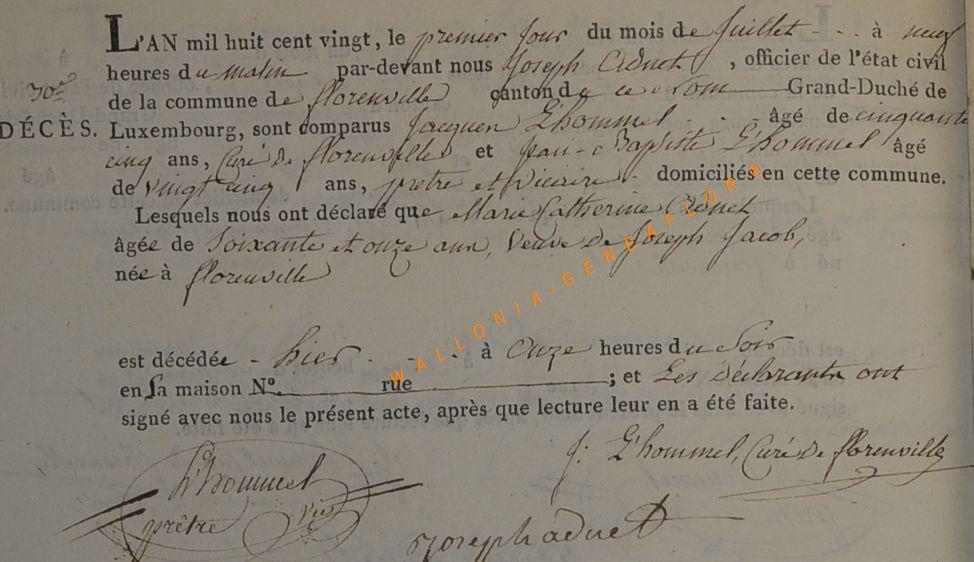 L'AN mil huit cent vingt, le premier Jour du mois de Juillet - - à neuf
heures du matin par-devant nous Joseph Adnet, officier de l'état civil
de la commune de florenville canton de ce Nom Grand-Duché de
DÉCÈS. Luxembourg, sont comparus Jacques L'hommel - - âgé de cinquante
cinq ans, Curé de florenville et Jean-Baptiste L'hommel âgé
de vingt cinq ans, prêtre et vicaire - domiciliés en cette commune.
Lesquels nous ont déclaré que Marie Catherine Adnet
âgée de Soixante et onze ans, Veuve de Joseph Jacob,
née à florenville
est décédée - hier - - - à Onze heures du Soir
en sa maison N° rue ; et Les déclarants ont
signé avec nous le présent acte, après que lecture leur en a été faite.
J: L'hommel, Curé de florenville
L'hommel
prêtre vic
Joseph adnet
WALLONIA-GENEAFLOR©